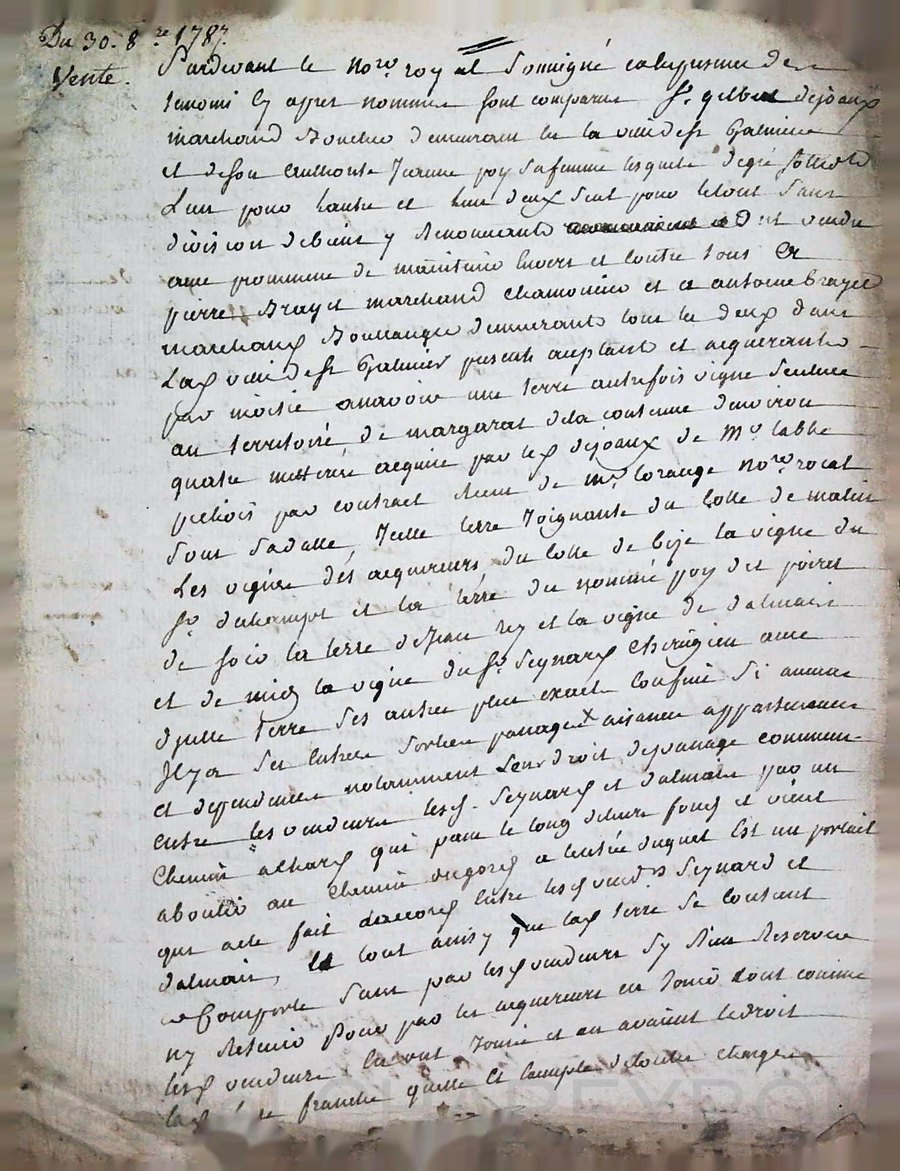 Du 30. 8.re 1787.
Vente.
Pardevant le no.re royal soussigné en la presence des
temoins cy apres nommés sont comparus s.r gilbert dejoaux
marchand Boucher demeurant en la ville de s.t Galmier
et de son authorité Jeanne poy sa femme lesquels de gré solid.t
l'un pour l'autre et l'un d'eux seul pour le tout sans
division de biens y renonceants ont vendu
avec promesse de maintenir envers et contre tous a
pierre Brayet marchand chamoiseur et a antoine brayet
marchand Boullanger demeurants tous les deux dans
lad. ville de s.t Galmier presents acceptants et acquerants
par moitié a savoir une terre autrefois vigne scituée
au territoire de margarat de la contenue d'environ
quatre metterée acquise par led. dejoaux de M.r labbé
par contract recu de m.e lorange no.re royal
sous sa datte, Icelle terre Joignante du cotté de matin
Les vignes des acquereurs, du cotté de bize la vigne du
s.r duchampt et la terre du nommé poy dit poiret
de soir la terre de Jean rey et la vigne de dalmais
et de midy la vigne du s.r Seynard chirurgien avec
d'icelle terre ses autres plus exacts confins si aucuns
Il y a ses entrées sorties passages aisances appartenances
et dependances notamment leur droit de passage commun
entre les vendeurs lesd. Seynard et dalmais par un
chemin a chard qui passe le long de leurs fonds et vient
aboutir au chemin a l'entrée duquel Est un portail
qui a été fait d'accord entre lesd. vendrs Seynard et
dalmais, le tout ainsy que lad. terre se contient
et Comporte sans par lesd. vendeurs s'y rien reserver
ny retenir Pour par les acquereurs en Jouir tout comme
lesd. vendeurs en ont Joui et en avaient le droit
franche quitte et exempte de toutes charges